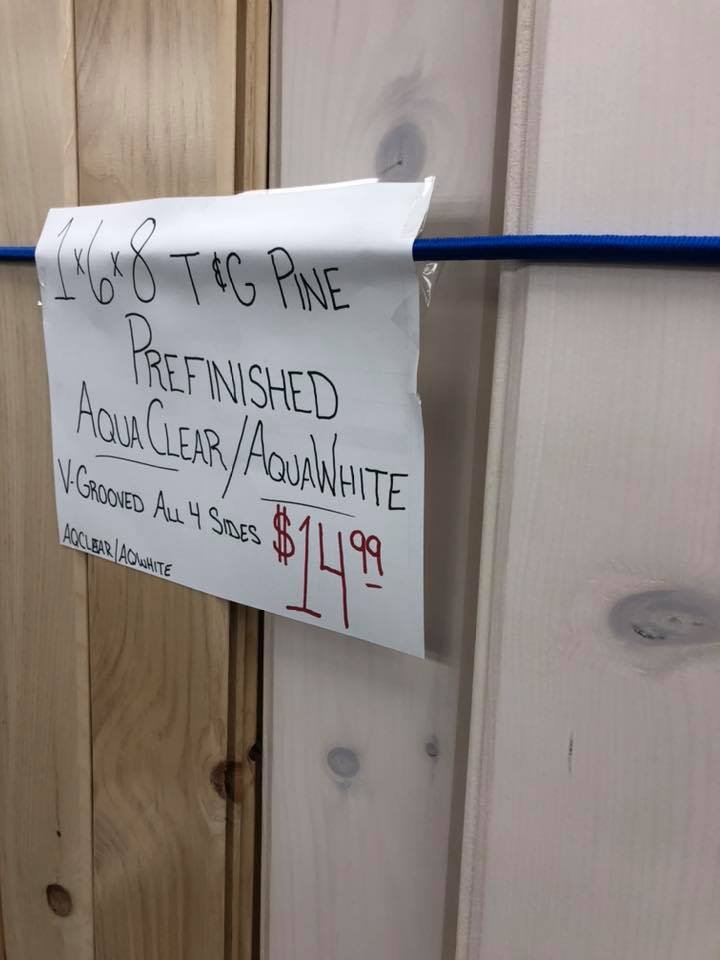 1x6x8 T&G PINE
PREFINISHED
AQUA CLEAR/AQUAWHITE
V-GROOVED ALL 4 SIDES $14.99
AQCLEAR/AQWHITE